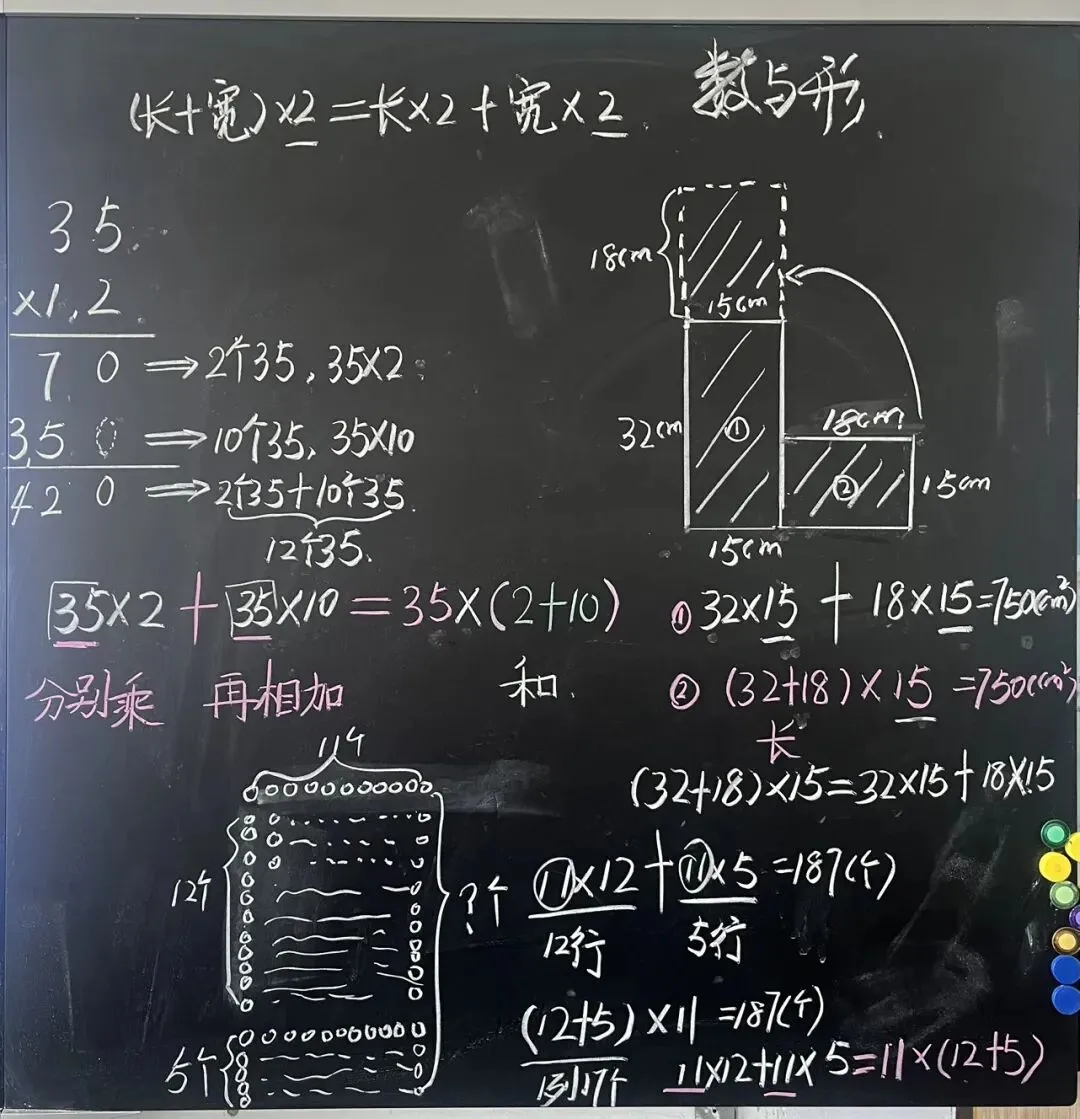 (长+宽)×2=长×2+宽×2.
数与形
35
×12
70 ⇒ 2个35, 35×2
350 ⇒ 10个35, 35×10
420 ⇒ 2个35+10个35
12个35.
35×2+35×10=35×(2+10)
分别乘 再相加 和
18cm
15cm
32cm
①
18cm
②
15cm
15cm
① 32×15+18×15=750(cm²)
② (32+18)×15=750(cm²)
长
(32+18)×15=32×15+18×15
11个
12个
?个
5个
11×12+11×5=187(个)
12行 5行
(12+5)×11=187(个)
11×12+11×5=11×(12+5)